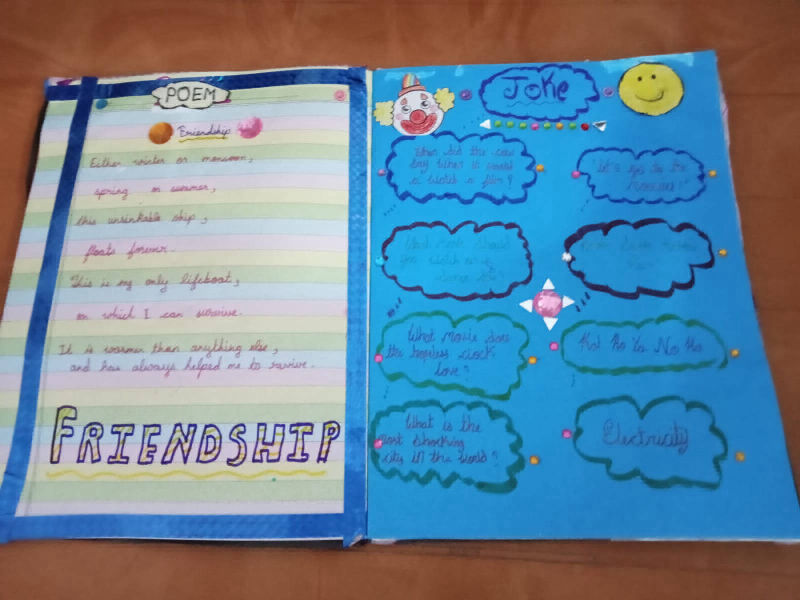 POEM
Friendship
Either winter or monsoon,
spring or summer,
this unsinkable ship,
floats forever.
This is my only lifeboat,
on which I can survive.
It is warmer than anything else,
and has always helped me to revive.
FRIENDSHIP
Joke
What did the cow
say when it wants
a watch a film?
"Let's go to the
What should
you watch
What Movie does
the hopeless clock
love?
Kal Ho Ya Na Ho
What is the
most shocking
city in the world?
Electricity